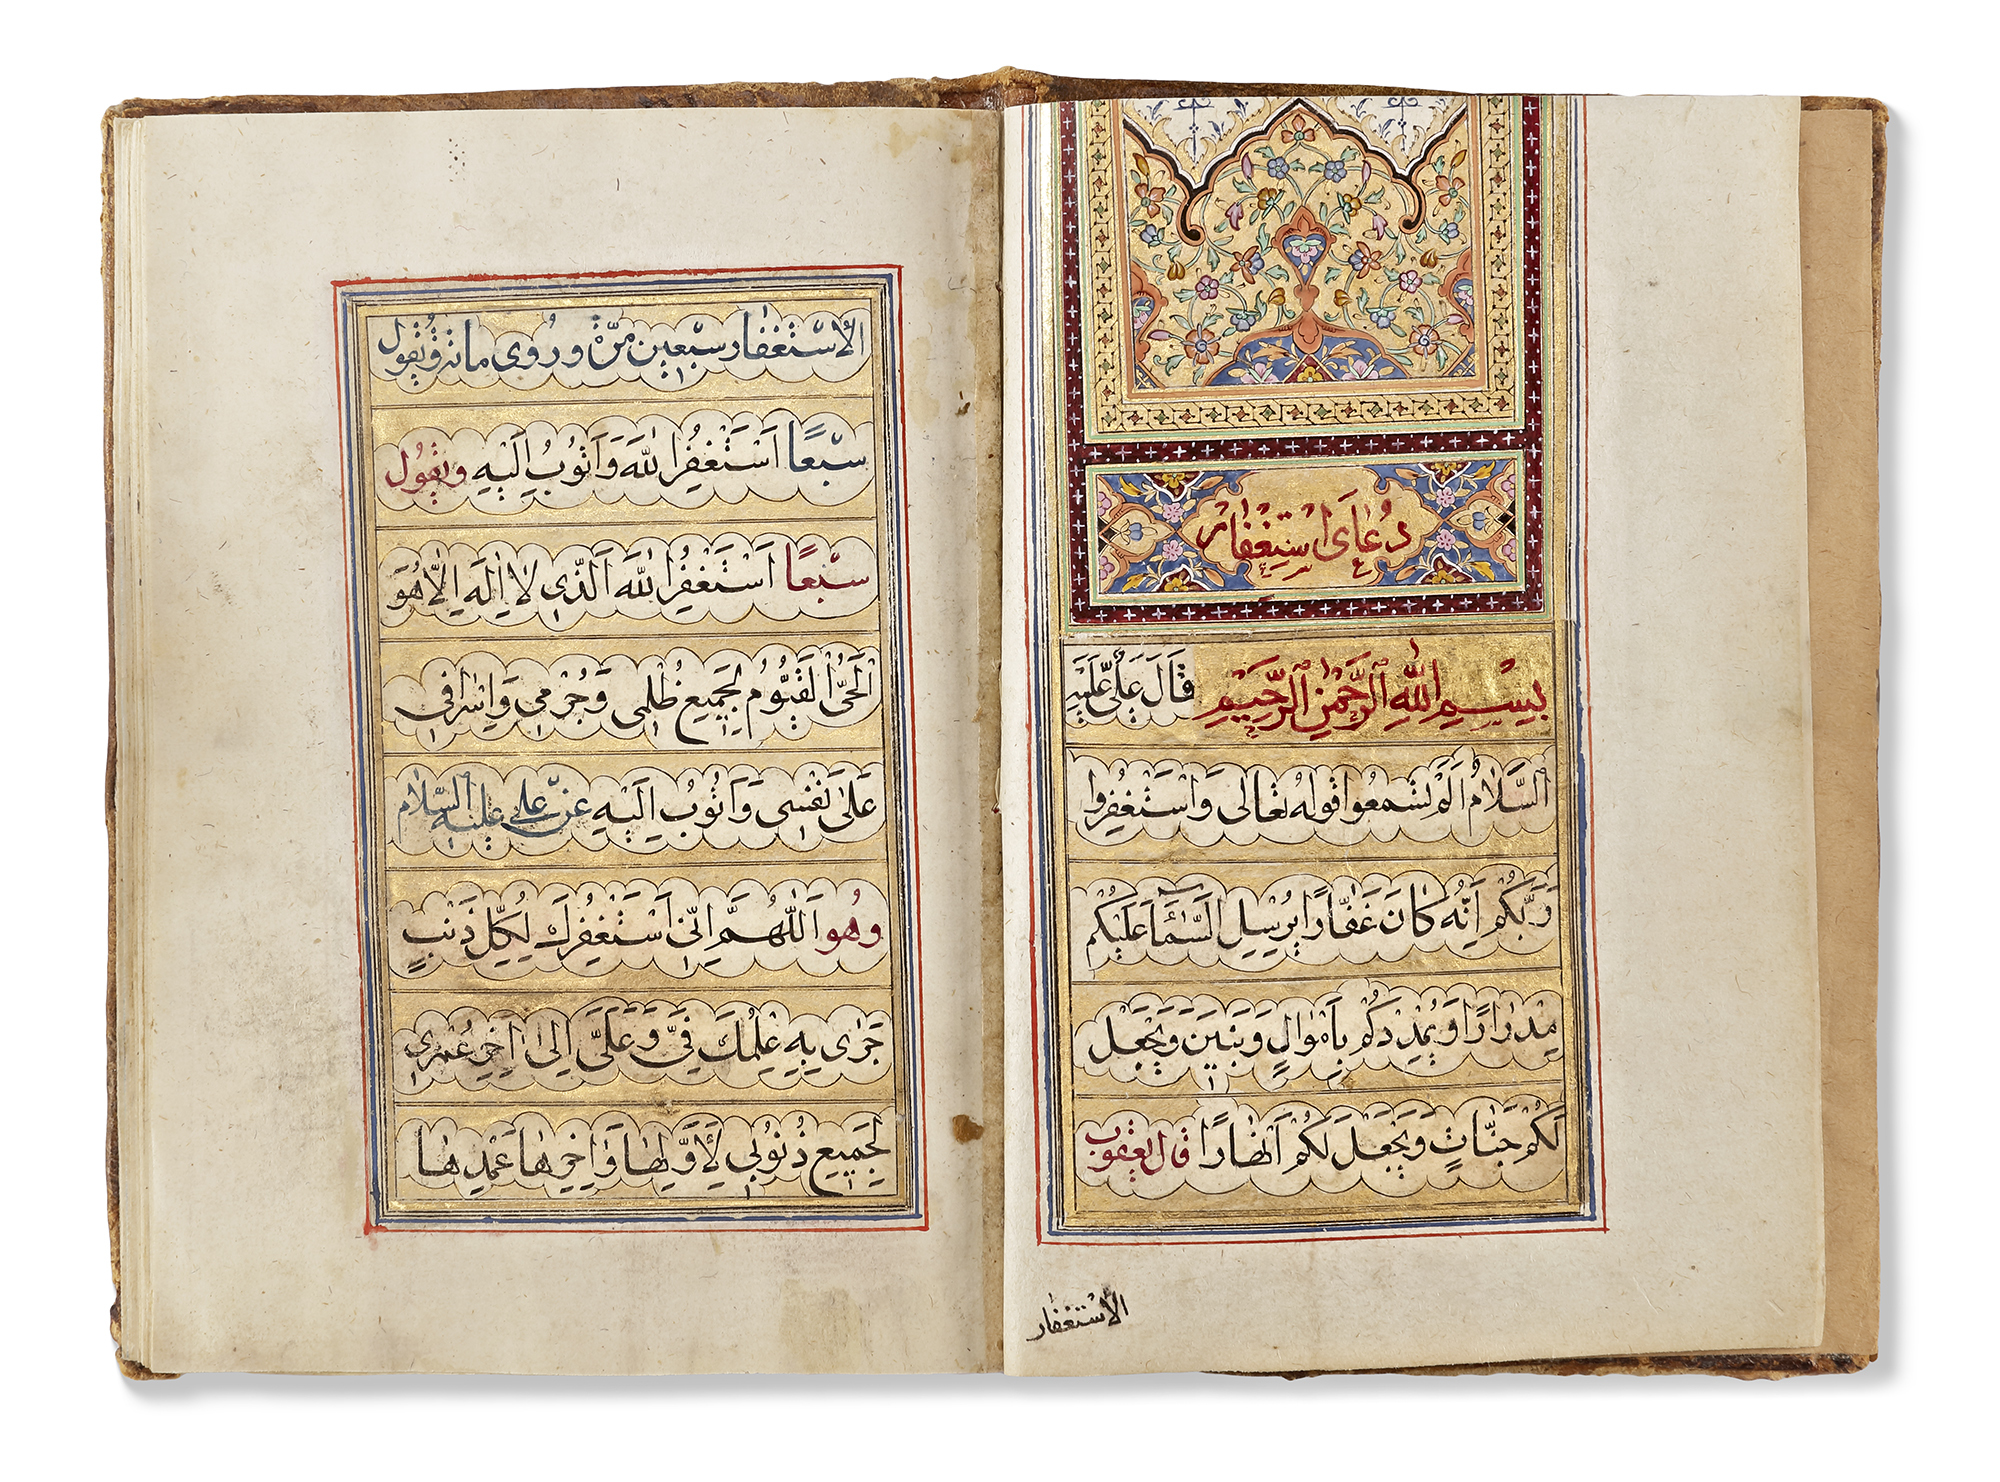 دُعَایِ اسْتِغْفَار
بِسْمِ اللّٰهِ الرَّحْمٰنِ الرَّحِيْمِ قَالَ عَلِيٌّ عَلَيْهِ
السَّلَامُ اَلَمْ تَسْمَعُوا قَوْلَهُ تَعَالٰى وَاسْتَغْفِرُوا
رَبَّكُمْ اِنَّهُ كَانَ غَفَّارًا يُرْسِلِ السَّمَآءَ عَلَيْكُمْ
مِدْرَارًا وَيُمْدِدْكُمْ بِاَمْوَالٍ وَبَنِيْنَ وَيَجْعَلْ
لَكُمْ جَنَّاتٍ وَيَجْعَلْ لَكُمْ اَنْهَارًا قال يعقوب
الاسْتَغْفَار
الاسْتَغْفَار سَبْعِينَ مَرَّةً وَرُوِيَ مائة وَيَقُولُ
سَبْعًا اَسْتَغْفِرُ اللّٰهَ وَاَتُوْبُ اِلَيْهِ وَيَقُولُ
سَبْعًا اَسْتَغْفِرُ اللّٰهَ الَّذِي لَا اِلٰهَ اِلَّا هُوَ
الْحَيُّ الْقَيُّوْمُ لِجَمِيْعِ ظُلْمِي وَجُرْمِي وَاِسْرَافِي
عَلٰى نَفْسِي وَاَتُوْبُ اِلَيْهِ عَنْ عَلِيٍّ عَلَيْهِ السَّلَام
وهو اَللّٰهُمَّ اِنِّي اَسْتَغْفِرُكَ لِكُلِّ ذَنْبٍ
جَرٰى بِهِ عِلْمُكَ فِيَّ وَعَلَيَّ اِلٰى اٰخِرِ عُمْرِي
لِجَمِيْعِ ذُنُوْبِي لِاَوَّلِهَا وَاٰخِرِهَا عَمْدِهَا